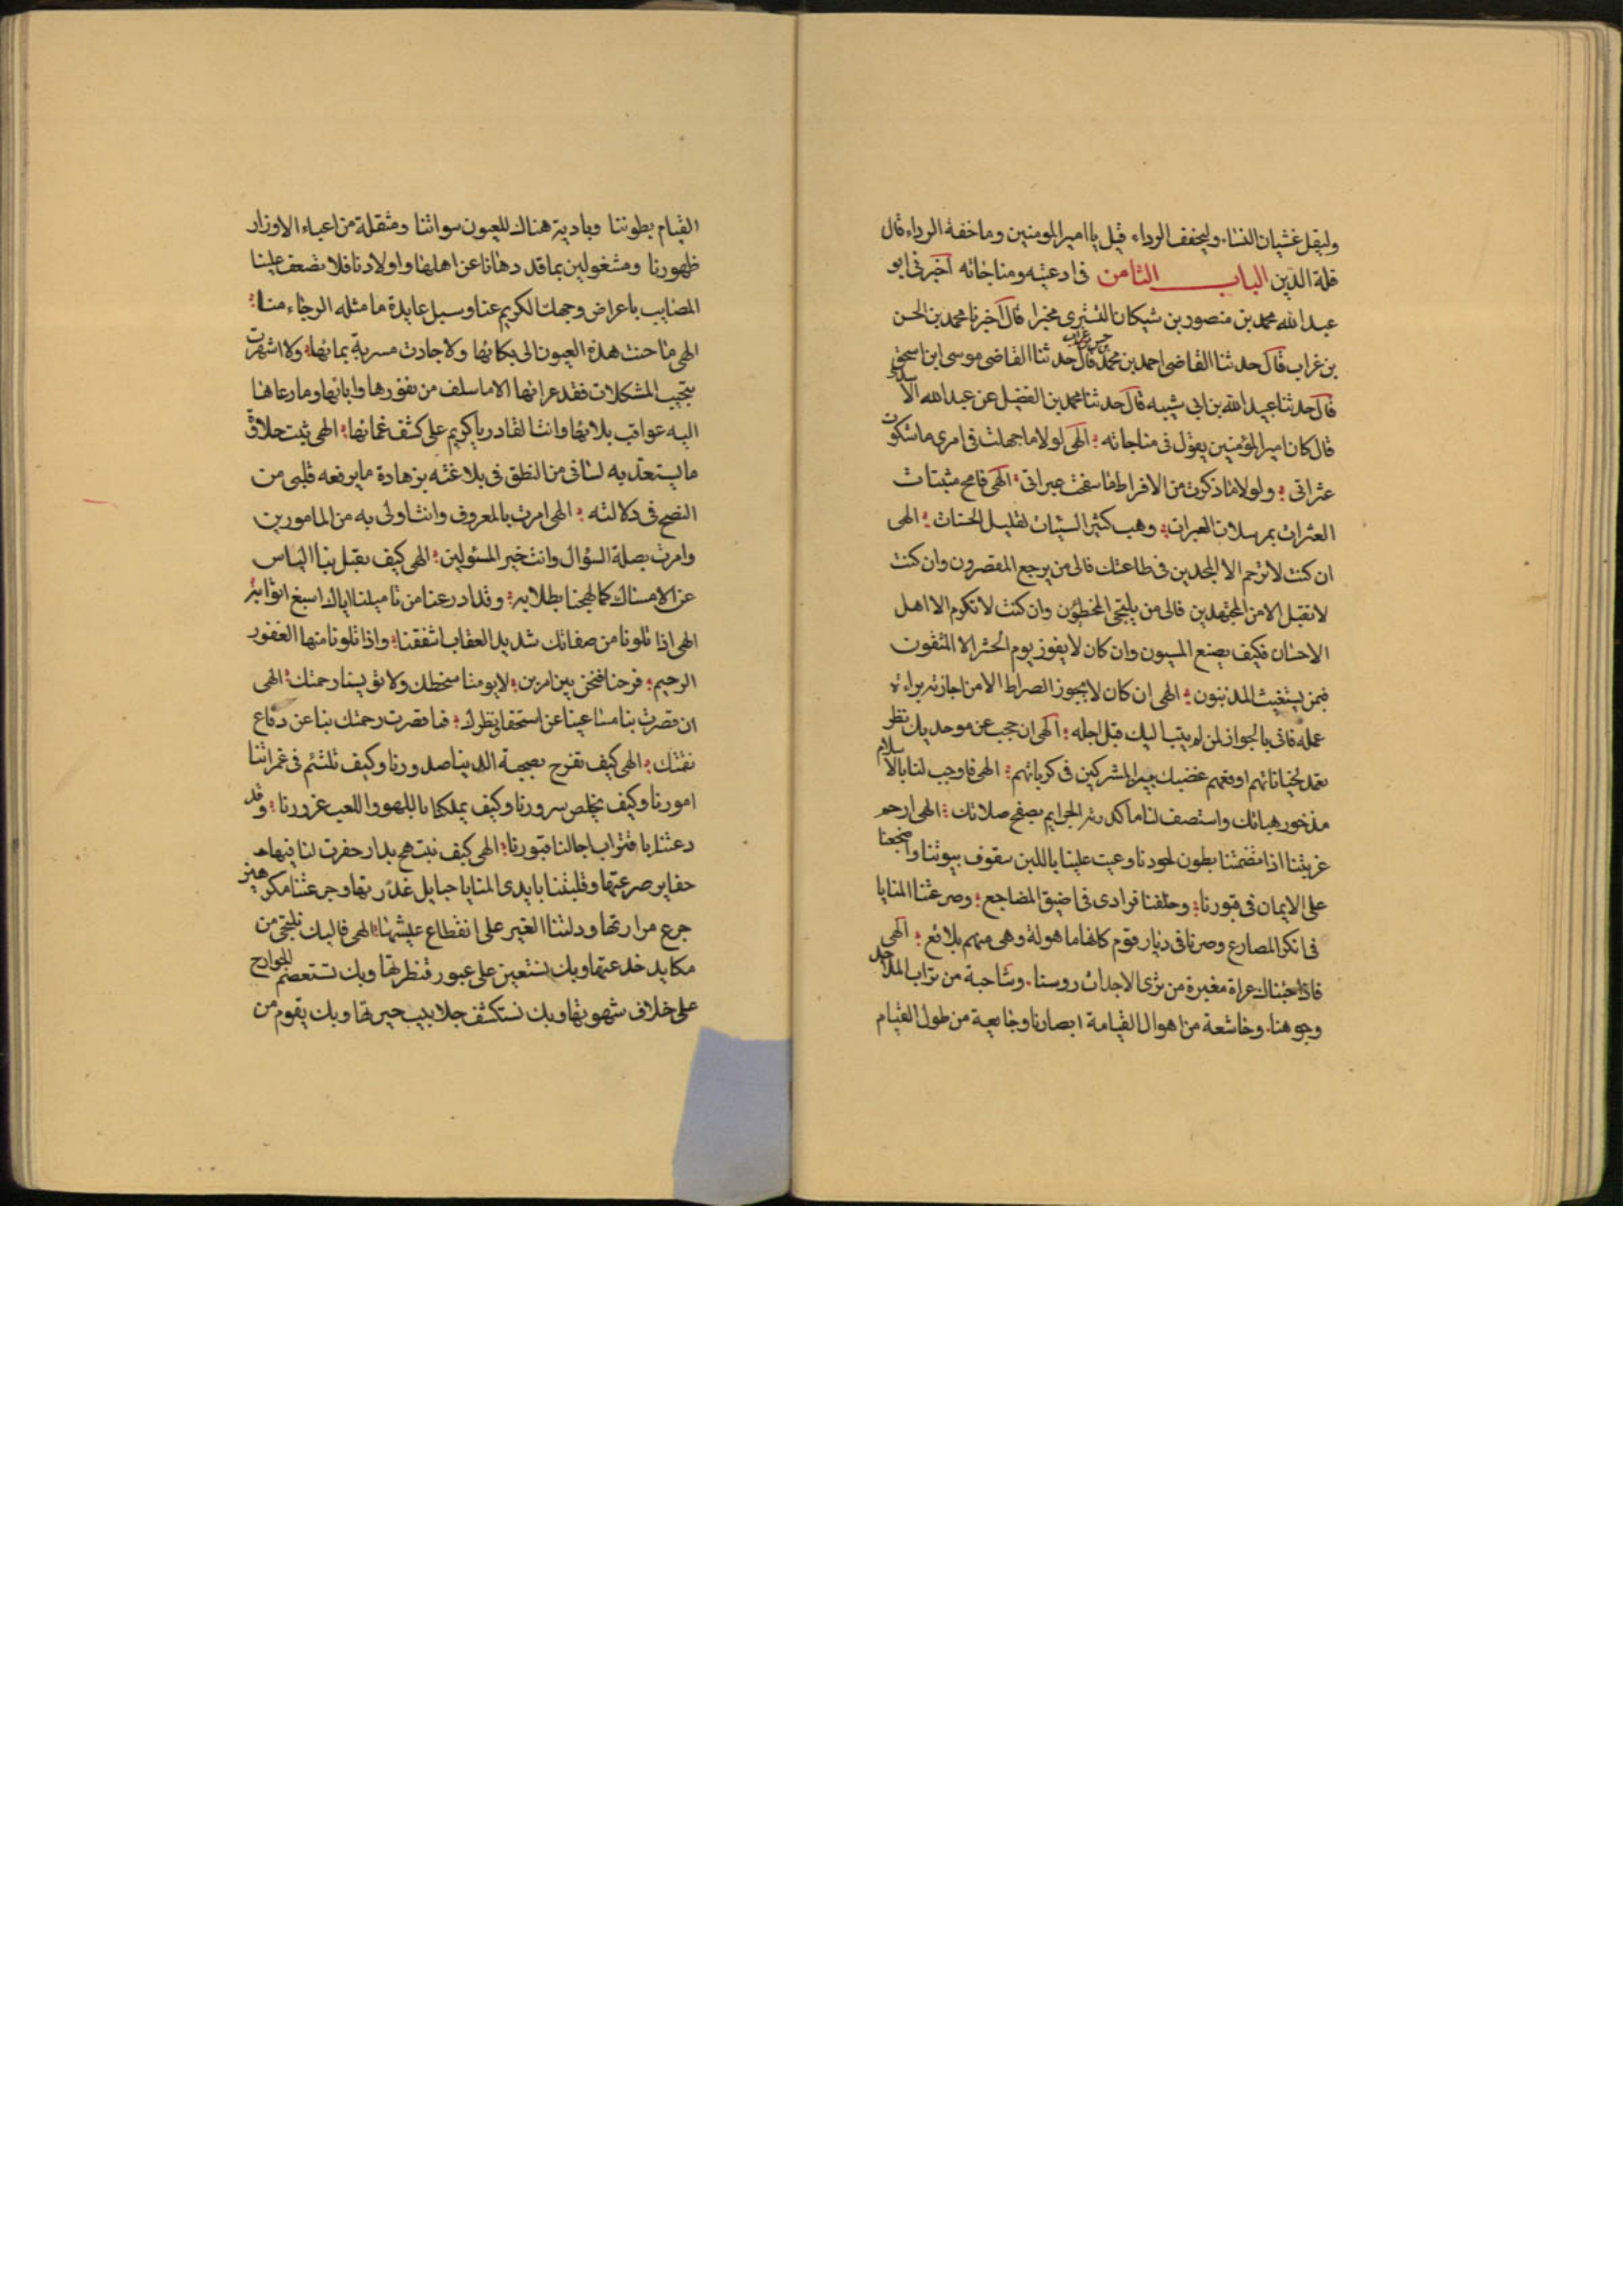 وليقل غشيان النسا. وليخفف الرداء قيل يا امير المومنين وما خفة الرداء قال
قلة الدين الباب الثامن في ادعيته ومناجاته اخبرني ابو
عبد الله محمد بن منصور بن شيكان التستري مخبرا قال اخبرنا محمد بن الحسن
بن غراب قال حدثنا القاضي احمد بن محمد قال حدثنا القاضي موسى ابن اسحق
قال حدثنا عبيد الله بن ابي شيبه قال حدثنا محمد بن الفضيل عن عبد الله الاسدي
قال كان امير المؤمنين يقول في مناجاته الهي لولا ما جهلت في امري ما شكوت
عثراتي ولولا ما ذكرت من الافراط ما سفحت عبراتي الهي فامح مثبتات
العثرات بمرسلات العبرات وهب كثير السيئات لقليل الحسنات الهي
ان كنت لا ترحم الا المجدين في طاعتك فالى من يرجع المقصرون وان كنت
لا تقبل الا من المجتهدين فالى من يلتجي المخطئون وان كنت لا تكرم الا اهل
الاحسان فكيف يصنع المسيون وان كان لا يفوز يوم الحشر الا المتقون
فبمن يستغيث المذنبون الهي ان كان لا يجوز الصراط الا من اجازته براءة
عمله فانى بالجواز لمن لم يتب اليك قبل اجله الهي ان حجب عن موحديك نظر
تغمد لجناياتهم اوقعهم غضبك بين المشركين في كرباتهم الهي فاوجب لنا بالاسلام
مذخور هباتك واستصف لنا ما كدرته الجرايم بصفح صلاتك الهي ارحم
غربتنا اذا تضمتنا بطون لحودنا وعميت علينا باللبن سقوف بيوتنا واضجعنا
على الايمان في قبورنا وخلفنا فرادى في اضيق المضاجع وصرعتنا المنايا
في انكر المصارع وصرنا في ديار قوم كانها ماهولة وهي منهم بلاقع الهي
فاذا جئناك عراة مغبرة من ثرى الاجداث روسنا. وشاحبة من تراب الملاحد
وجوهنا. وخاشعة من اهوال القيامة ابصارنا وجايعة من طول القيام
القيام بطوننا وبادية هناك للعيون سواتنا ومثقلة من اعباء الاوزار
ظهورنا ومشغولين بما قد دهانا عن اهلينا واولادنا فلا تضعف علينا
المصايب باعراض وجهك الكريم عنا وسلب عايدة ما مثله الرجاء منا
الهي ما حنت هذه العيون الى بكائها ولا جادت مسربة بمائها ولا اشهرت
بنحيب المشكلات فقد عزائها الا ما سلف من نفورها وابائها وما دعاها
اليه عواقب بلائها وانت القادر يا كريم على كشف غمائها الهي ثبت حلاوة
ما يستعذبه لساني من النطق في بلاغته بزهادة ما يرفعه قلبي من
النصح في دلالته الهي امرت بالمعروف وانت اولى به من المامورين
وامرت بصلة السؤال وانت خير المسئولين الهي كيف يقبل بنا الياس
عن الامساك كما لهجنا بطلابه وقد ادرعنا من تاميلنا اياك اسبغ اثوابه
الهي اذا تلونا من صفاتك شديد العقاب اشفقنا واذا تلونا منها الغفور
الرحيم فرحنا فنحن بين امرين لا يومنا سخطك ولا تويسنا رحمتك الهي
ان قصرت بنا مساعينا عن استحقاق نظرك فما قصرت رحمتك بنا عن دفاع
نقمتك الهي كيف تفرح بصحبة الدنيا صدورنا وكيف تلتئم في غمراتنا
امورنا وكيف يخلص سرورنا وكيف يملكنا باللهو واللعب غرورنا وقد
دعتنا باقتراب اجالنا قبورنا الهي كيف نبتهج بدار حفرت لنا فيها
حفاير صرعتها وقلبتنا بايدي المنايا حبايل غدرتها وجرعتنا مكرهين
جرع مرارتها ودلتنا العبر على انقطاع عيشتها الهي فاليك نلتجي من
مكايد خدعتها وبك نستعين على عبور قنطرتها وبك نستعصم الجوارح
على خلاف شهوتها وبك نستكشف جلابيب حيرتها وبك يقوم من